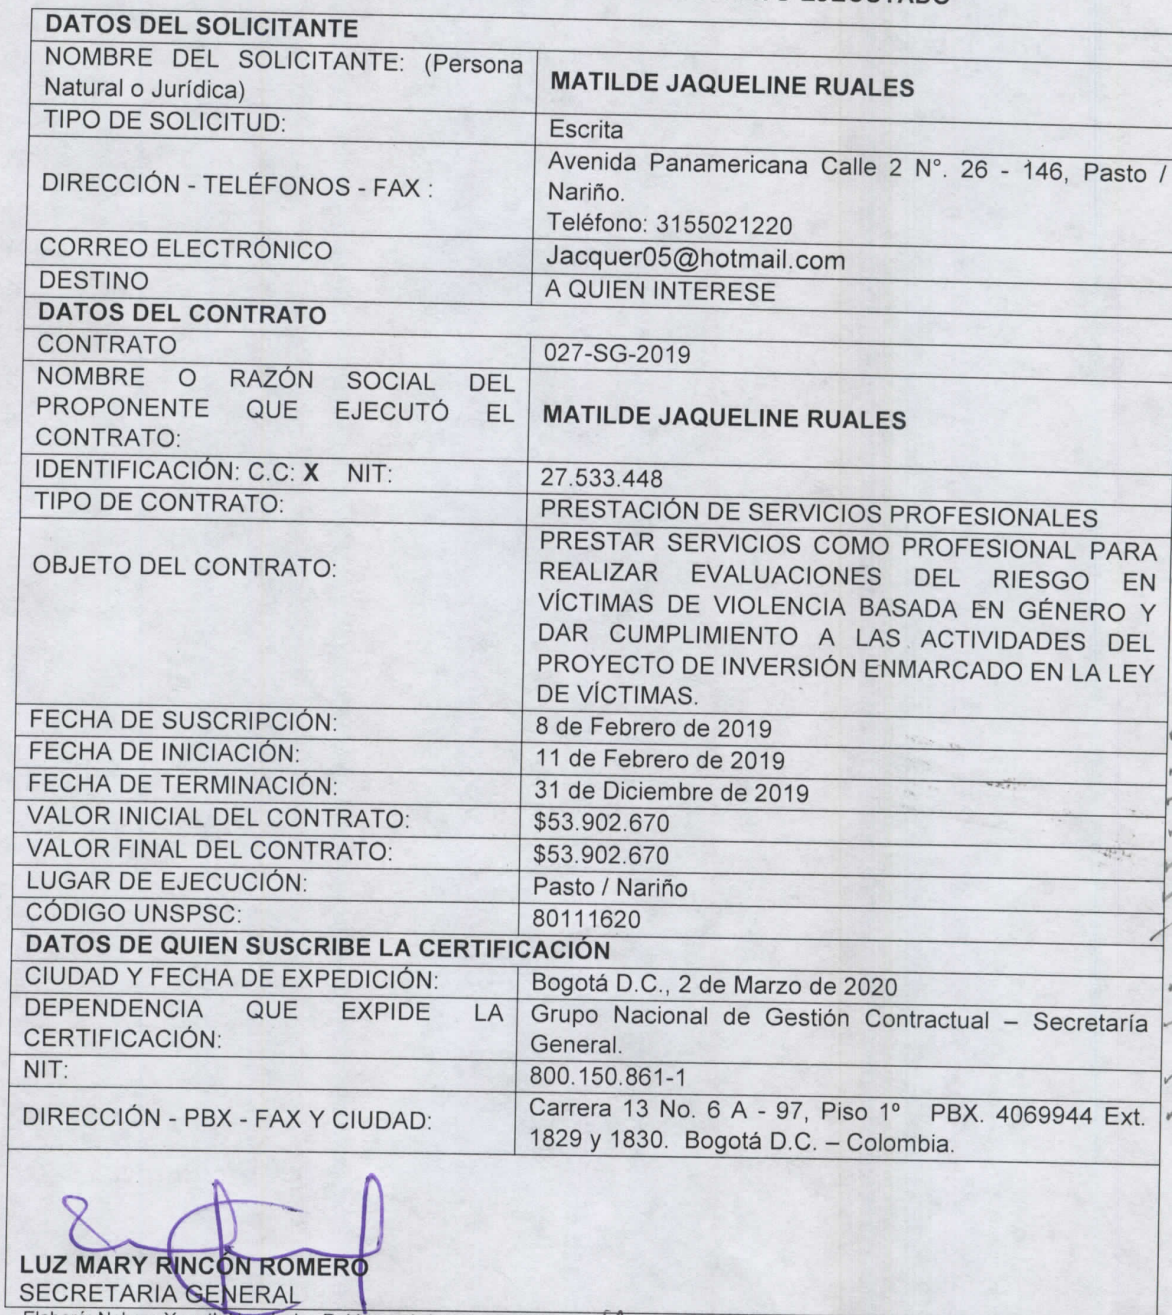 EJECUTADO
DATOS DEL SOLICITANTE
NOMBRE DEL SOLICITANTE: (Persona
Natural o Jurídica)
MATILDE JAQUELINE RUALES
TIPO DE SOLICITUD:
Escrita
DIRECCIÓN - TELÉFONOS - FAX :
Avenida Panamericana Calle 2 N°. 26 - 146, Pasto /
Nariño.
Teléfono: 3155021220
CORREO ELECTRÓNICO
Jacquer05@hotmail.com
DESTINO
A QUIEN INTERESE
DATOS DEL CONTRATO
CONTRATO
027-SG-2019
NOMBRE O RAZÓN SOCIAL DEL
PROPONENTE QUE EJECUTÓ EL
CONTRATO:
MATILDE JAQUELINE RUALES
IDENTIFICACIÓN: C.C: X NIT:
27.533.448
TIPO DE CONTRATO:
PRESTACIÓN DE SERVICIOS PROFESIONALES
OBJETO DEL CONTRATO:
PRESTAR SERVICIOS COMO PROFESIONAL PARA
REALIZAR EVALUACIONES DEL RIESGO EN
VÍCTIMAS DE VIOLENCIA BASADA EN GÉNERO Y
DAR CUMPLIMIENTO A LAS ACTIVIDADES DEL
PROYECTO DE INVERSIÓN ENMARCADO EN LA LEY
DE VÍCTIMAS.
FECHA DE SUSCRIPCIÓN:
8 de Febrero de 2019
FECHA DE INICIACIÓN:
11 de Febrero de 2019
FECHA DE TERMINACIÓN:
31 de Diciembre de 2019
VALOR INICIAL DEL CONTRATO:
$53.902.670
VALOR FINAL DEL CONTRATO:
$53.902.670
LUGAR DE EJECUCIÓN:
Pasto / Nariño
CÓDIGO UNSPSC:
80111620
DATOS DE QUIEN SUSCRIBE LA CERTIFICACIÓN
CIUDAD Y FECHA DE EXPEDICIÓN:
Bogotá D.C., 2 de Marzo de 2020
DEPENDENCIA QUE EXPIDE LA
CERTIFICACIÓN:
Grupo Nacional de Gestión Contractual – Secretaría
General.
NIT:
800.150.861-1
DIRECCIÓN - PBX - FAX Y CIUDAD:
Carrera 13 No. 6 A - 97, Piso 1º PBX. 4069944 Ext.
1829 y 1830. Bogotá D.C. – Colombia.
LUZ MARY RINCÓN ROMERO
SECRETARIA GENERAL